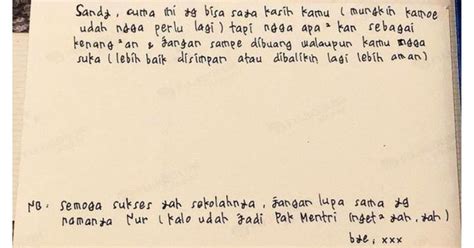 Sandy, cuma ini yg bisa saya kasih kamu (mungkin kamoe
udah ngga perlu lagi) tapi ngga apa² kan sebagai
kenang²an & jangan sampe dibuang walaupun kamu ngga
suka (lebih baik disimpan atau dibalikin lagi lebih aman)
NB: semoga sukses yah sekolahnya, jangan lupa sama yg
namanya Nur (kalo udah jadi Pak Mentri inget² yah, yah)
bye, xxx